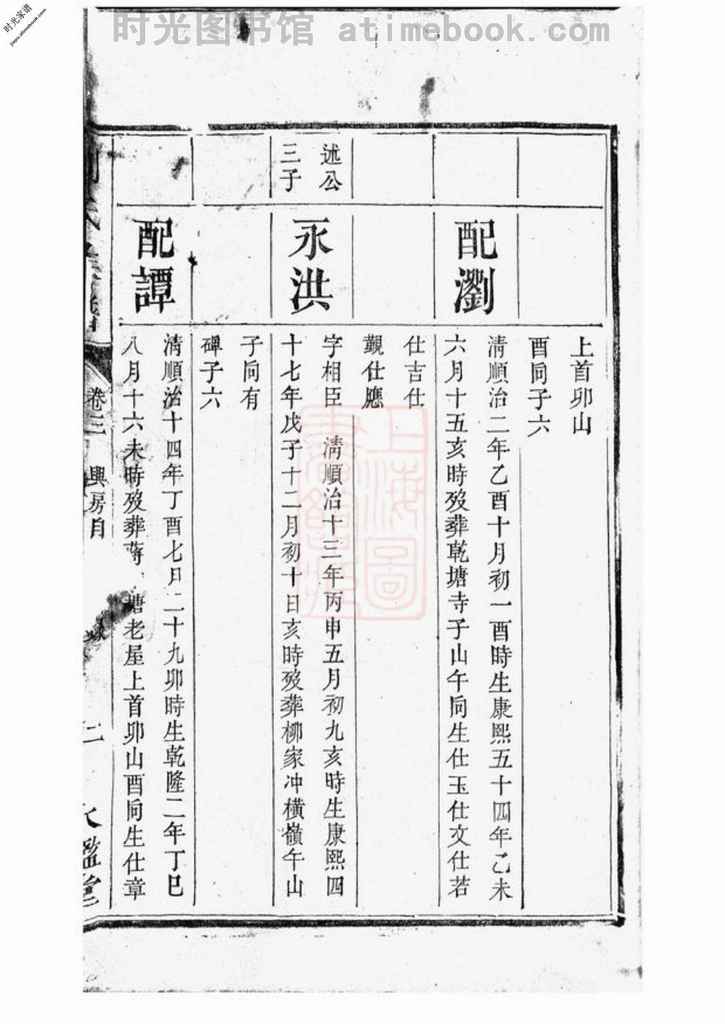 时光图书馆 atimebook.com
时光家谱
上首卯山
酉向子六
配瀏
清順治二年乙酉十月初一酉時生康熙五十四年乙未
六月十五亥時歿葬乾塘寺子山午向生仕玉仕文仕若
仕吉仕
觐仕應
述公
三子
永洪
字相臣 清順治十三年丙申五月初九亥時生康熙四
十七年戊子十二月初十日亥時歿葬柳家冲橫嶺午山
子向有
碑子六
配譚
清順治十四年丁酉七月二十九卯時生乾隆二年丁巳
八月十六未時歿葬蔣塘老屋上首卯山酉向生仕章
卷二 興房目
上海圖書館藏